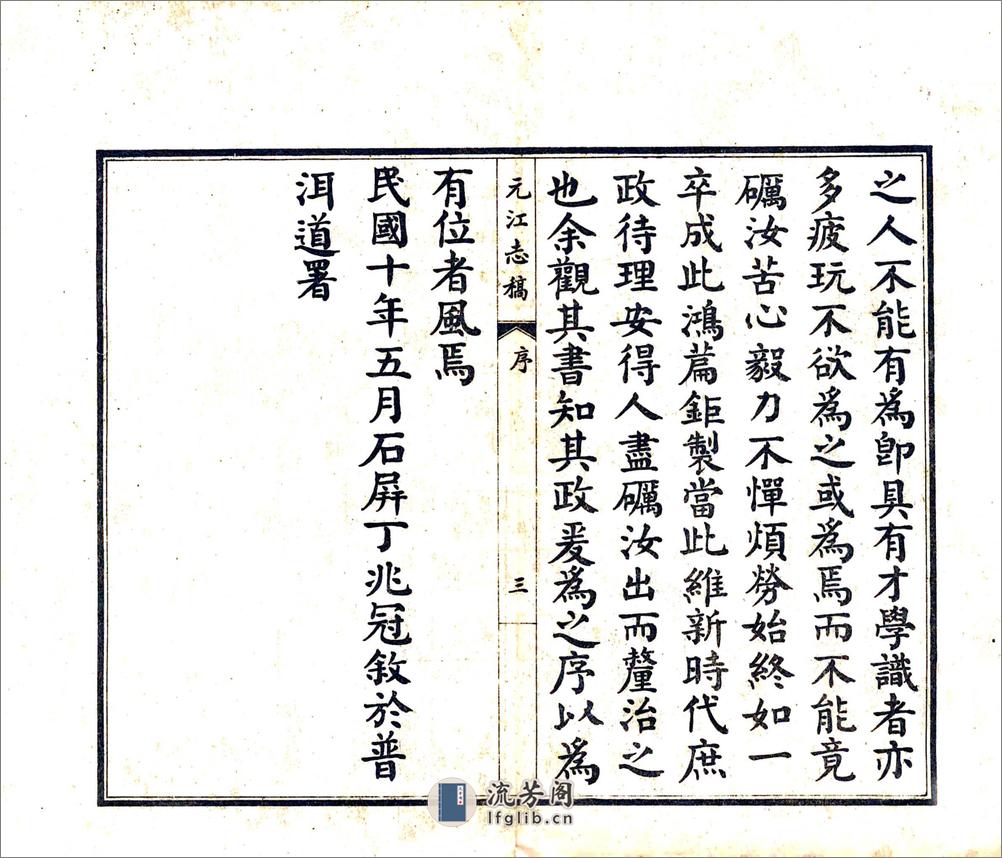 之人不能有爲卽具有才學識者亦
多疲玩不欲爲之或爲焉而不能竟
礪汝苦心毅力不憚煩勞始終如一
卒成此鴻篇鉅製當此維新時代庶
政待理安得人盡礪汝出而釐治之
也余觀其書知其政爰爲之序以爲
元江志稿 序 三
有位者風焉
民國十年五月石屏丁兆冠敘於普
洱道署
流芳阁
lfglib.cn